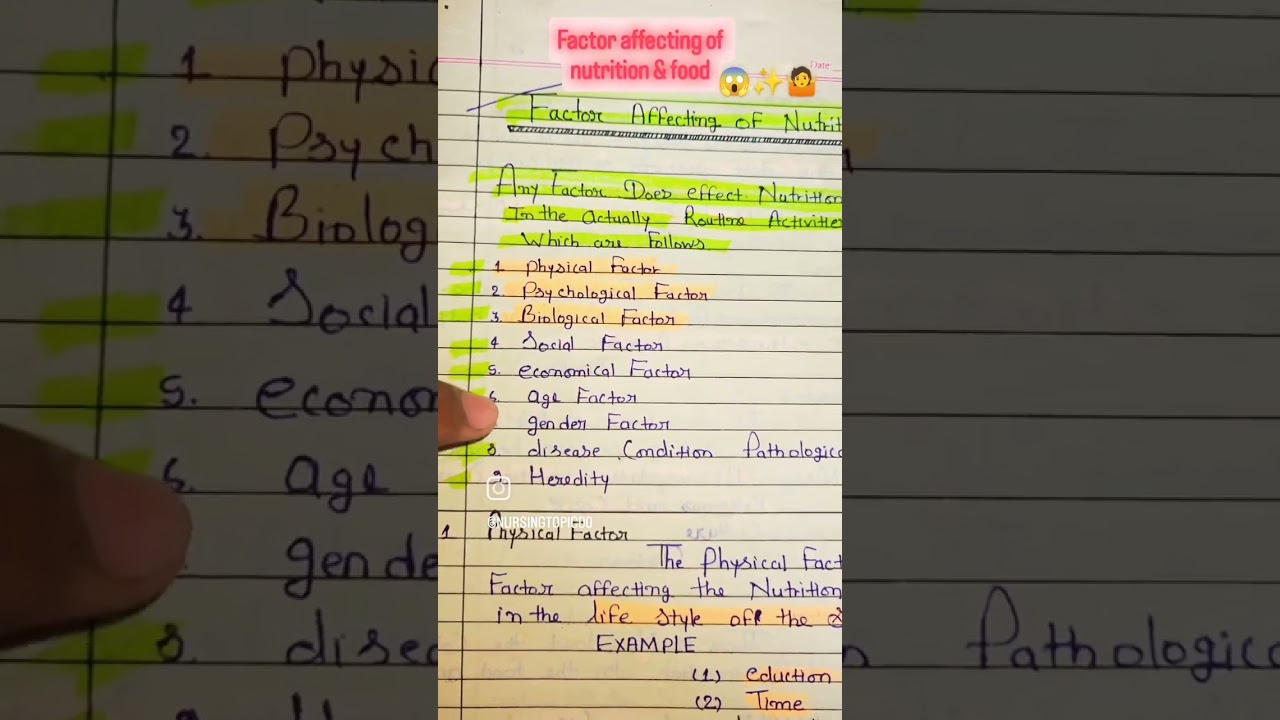 Factor affecting of
nutrition & food 😱✨🤷
Date
Factor Affecting of Nutrit
Any Factor Does effect Nutrition
In the actually Routine Activities
Which are Follows
1 physical Factor
2. Psychological Factor
3. Biological Factor
4 Social Factor
5. economical Factor
6. age Factor
gender Factor
8. disease Condition Pathologica
9 Heredity
@NURSINGTOPICDD
1 Physical Factor
The Physical Fact
Factor affecting the Nutrition
in the life style off the
EXAMPLE
(1) eduction
(2) Time
1 physic
2. Psych
3. Biolog
4 Social
5. econom
6. age
gende
8. disec
Pathologica